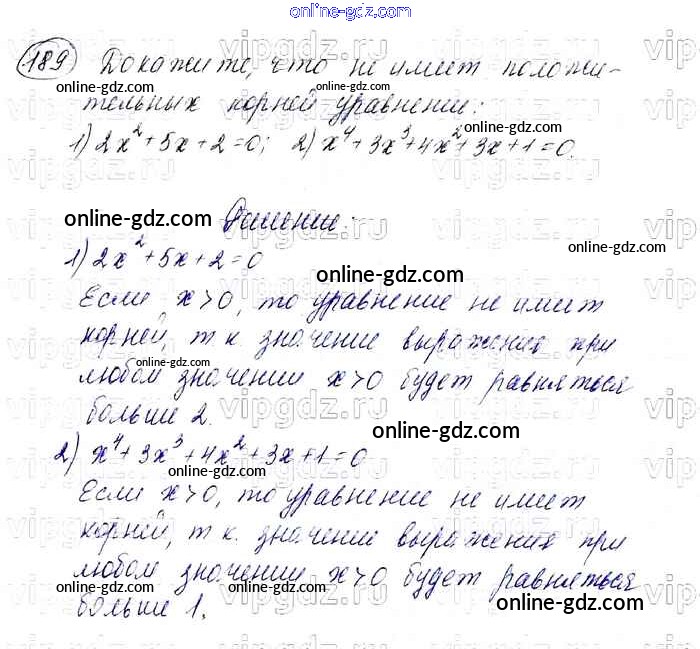 online-gdz.com
189 Докажите, что не имеет положи-
online-gdz.com
тельных корней уравнение:
online-gdz.com
1) 2x² + 5x + 2 = 0; 2) x⁴ + 3x³ + 4x² + 3x + 1 = 0.
Решение:
online-gdz.com
1) 2x² + 5x + 2 = 0
online-gdz.com
Если x > 0, то уравнение не имеет
online-gdz.com
корней, т к. значение выражения при
online-gdz.com
любом значении x > 0 будет равняться
online-gdz.com
больше 2.
online-gdz.com
2) x⁴ + 3x³ + 4x² + 3x + 1 = 0
online-gdz.com
Если x > 0, то уравнение не имеет
online-gdz.com
корней, т к. значение выражения при
online-gdz.com
любом значении x > 0 будет равняться
online-gdz.com
больше 1.